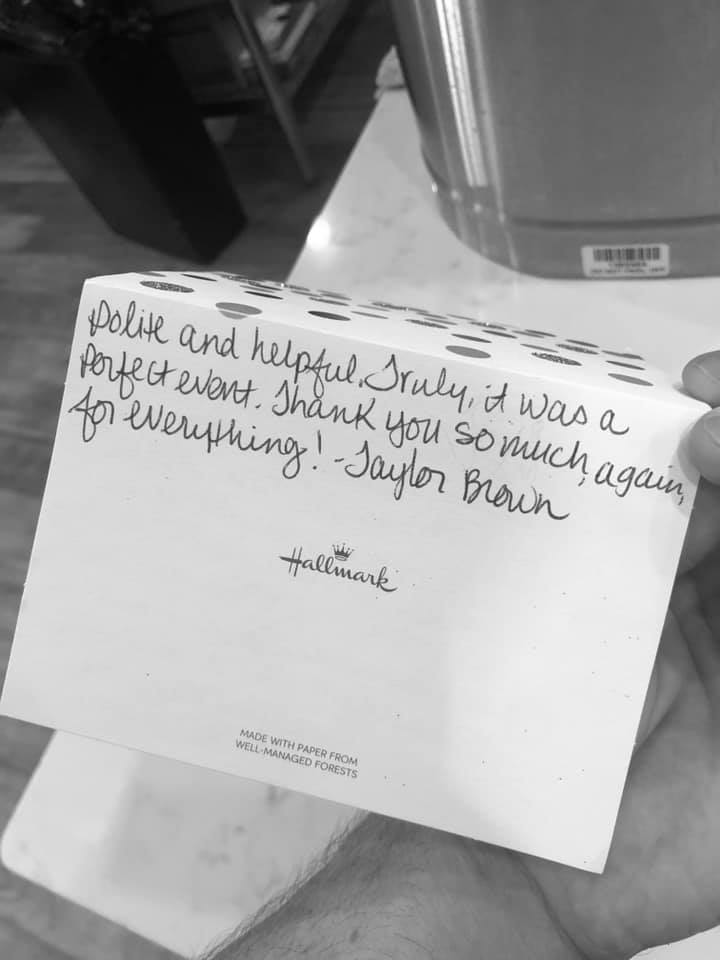 Polite and helpful. Truly, it was a
perfect event. Thank you so much, again,
for everything! -Taylor Brown
Hallmark
MADE WITH PAPER FROM
WELL-MANAGED FORESTS